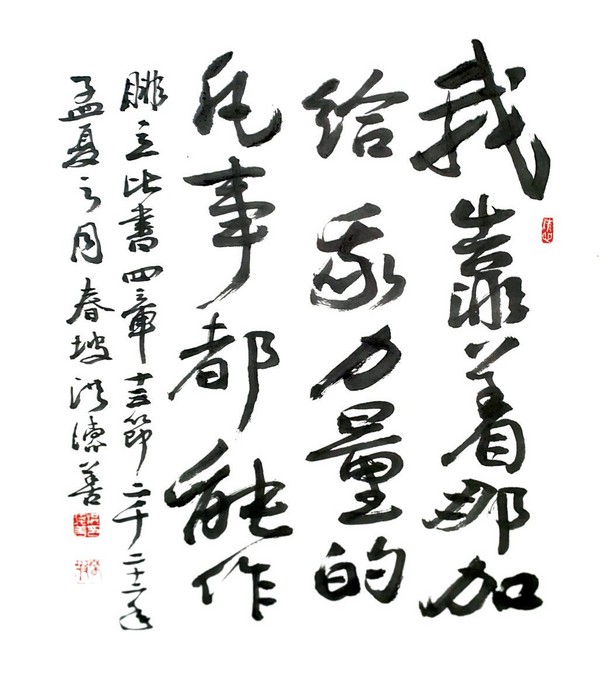 我靠着那加
給我力量的
凡事都能作
腓立比書四章十三節二千二十二年
孟夏之月春坡洪德善